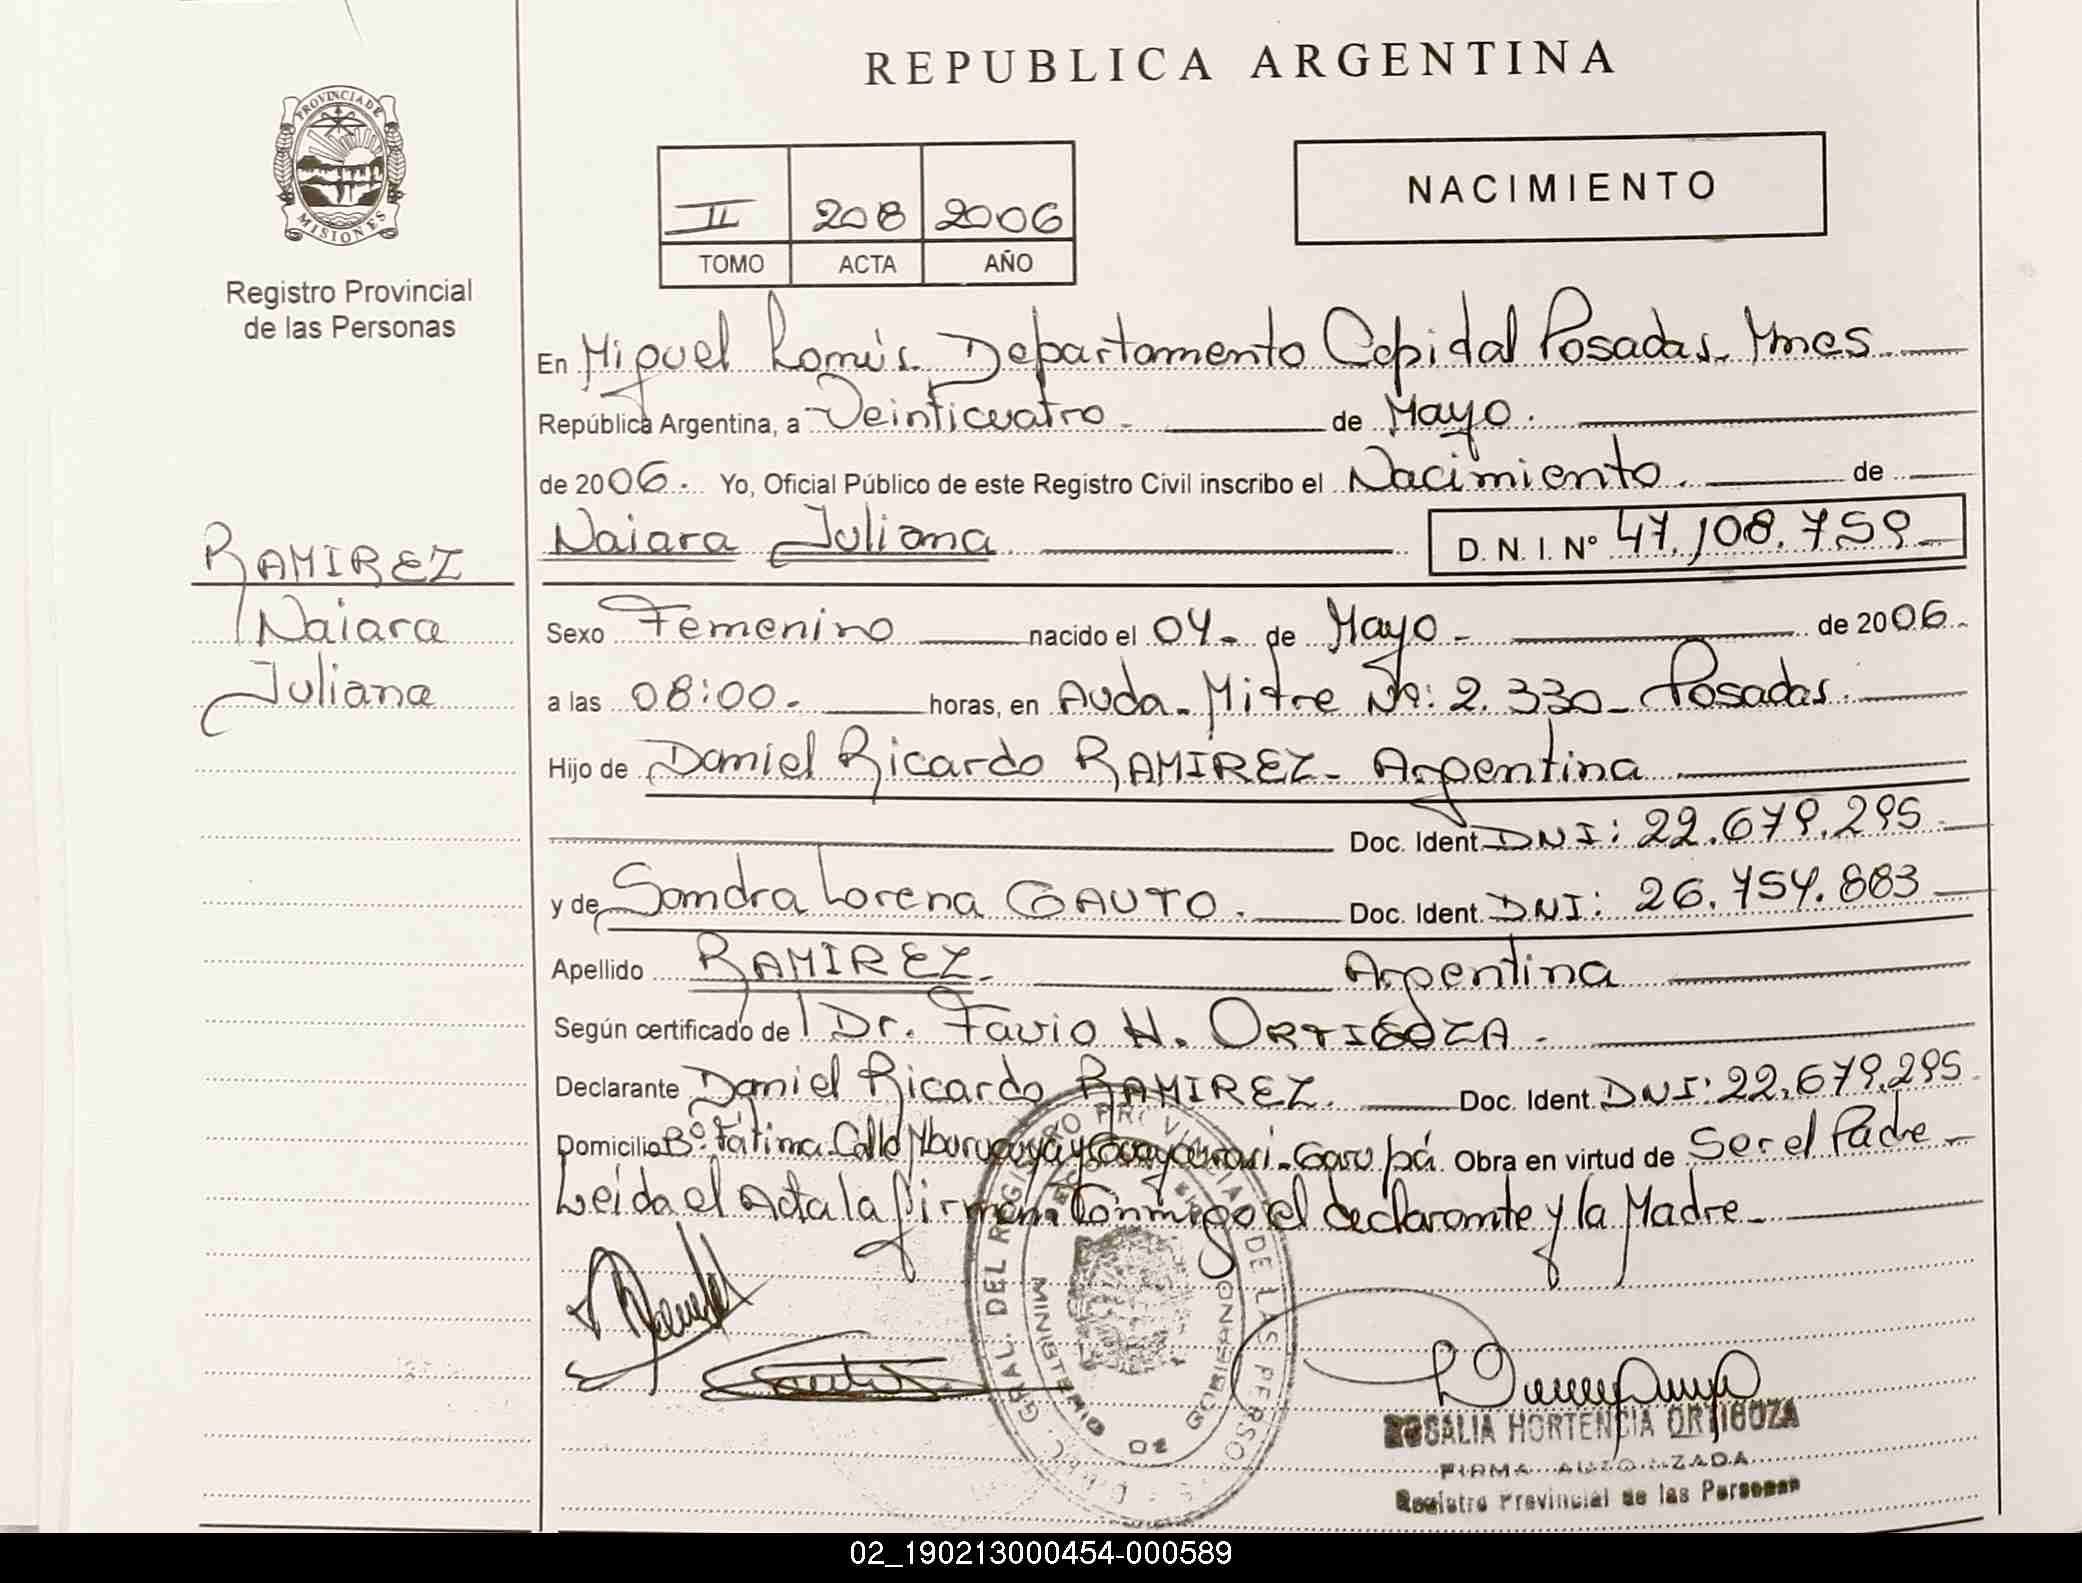 REPUBLICA ARGENTINA
PROVINCIA DE
MISIONES
Registro Provincial
de las Personas
II 208 2006
TOMO ACTA AÑO
NACIMIENTO
En Miguel Lanús. Departamento Capital Posadas. Mnes
República Argentina, a Veinticuatro. de Mayo.
de 2006. Yo, Oficial Público de este Registro Civil inscribo el Nacimiento. de
Naiara Juliana D. N. I. Nº 47.108.759
RAMIREZ
Naiara
Juliana
Sexo Femenino nacido el 04 de Mayo de 2006
a las 08:00 horas, en Avda. Mitre Nº: 2.330 Posadas.
Hijo de Daniel Ricardo RAMIREZ Argentina
Doc. Ident. DNI: 22.679.295
y de Sandra Lorena GAUTO. Doc. Ident. DNI: 26.754.883
Apellido RAMIREZ. Argentina
Según certificado de Dr. Favio H. ORTIGOZA
Declarante Daniel Ricardo RAMIREZ. Doc. Ident. DNI: 22.679.295
Domicilio Bº. Fátima. Calle Mburucuyá y Garupá. Obra en virtud de Ser el Padre
Leida el Acta la firman Conmigo el declarante y la Madre
GRAL. DEL REGISTRO PROVINCIAL DE LAS PERSONAS
MINISTERIO DE GOBIERNO
ROSALIA HORTENCIA ORTIGOZA
FIRMA AUTORIZADA
Registro Provincial de las Personas
02_190213000454-000589